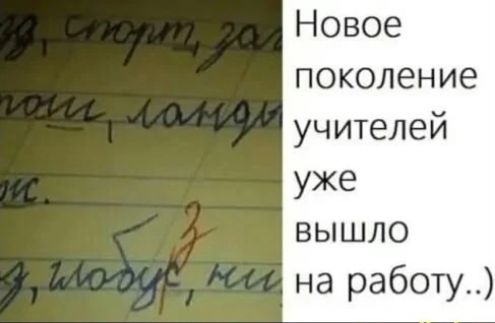 спорт,
ланды
з
глобус, ни
Новое
поколение
учителей
уже
вышло
на работу..)